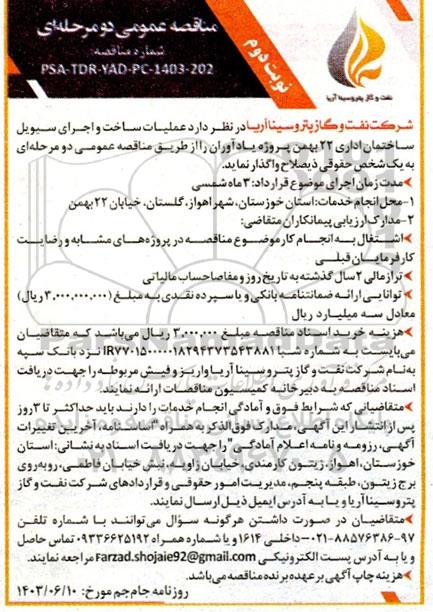 مناقصه عمومی دو مرحله‌ای
شماره مناقصه:
PSA-TDR-YAD-PC-1403-202
نوبت دوم
نفت و گاز پتروسینا آریا
شرکت نفت و گاز پتروسینا آریا در نظر دارد عملیات ساخت و اجرای سیویل
ساختمان اداری ۲۲ بهمن پروژه یادآوران را از طریق مناقصه عمومی دو مرحله‌ای
به یک شخص حقوقی ذیصلاح واگذار نماید.
مدت زمان اجرای موضوع قرارداد: ۳ ماه شمسی
۱-محل انجام خدمات: استان خوزستان، شهر اهواز، گلستان، خیابان ۲۲ بهمن
۲-مدارک ارزیابی پیمانکاران متقاضی:
اشتغال به انجام کار موضوع مناقصه در پروژه‌های مشابه و رضایت
کارفرمایان قبلی
ترازمالی ۲ سال گذشته به تاریخ روز و مفاصاحساب مالیاتی
توانایی ارائه ضمانتنامه بانکی و یا سپرده نقدی به مبلغ (۳,۰۰۰,۰۰۰,۰۰۰ ریال)
معادل سه میلیارد ریال
هزینه خرید اسناد مناقصه مبلغ ۳,۰۰۰,۰۰۰ ریال می‌باشد که متقاضیان
می‌بایست به شماره شبا IR۷۷۰۱۵۰۰۰۰۰۱۸۲۹۴۳۷۳۵۴۳۸۸۱ نزد بانک سپه
به‌نام شرکت نفت و گاز پتروسینا آریا واریز و فیش مربوطه را جهت دریافت
اسناد مناقصه به دبیرخانه کمیسیون مناقصات ارائه نمایند.
متقاضیانی که شرایط فوق و آمادگی انجام خدمات را دارند باید حداکثر تا ۳ روز
پس از انتشار این آگهی، مدارک فوق‌الذکر به همراه "اساسنامه، آخرین تغییرات
آگهی، رزومه و نامه اعلام آمادگی" را جهت دریافت اسناد به نشانی: استان
خوزستان، اهواز، زیتون کارمندی، خیابان زاویه، نبش خیابان فاطمی، روبه‌روی
برج زیتون، طبقه پنجم، مدیریت امور حقوقی و قراردادهای شرکت نفت و گاز
پتروسینا آریا و یا به آدرس ایمیل ذیل ارسال نمایند.
متقاضیان در صورت داشتن هرگونه سؤال می‌توانند با شماره تلفن
۰۲۱-۸۸۵۷۶۳۸۶-۹۷ داخلی ۱۶۱۴ و یا شماره همراه ۰۹۳۳۶۶۲۵۱۹۲ تماس حاصل
و یا به آدرس پست الکترونیکی Farzad.shojaie92@gmail.com مراجعه نمایند.
هزینه چاپ آگهی بر عهده برنده مناقصه می‌باشد.
روزنامه جام‌جم مورخ: ۱۴۰۳/۰۶/۱۰